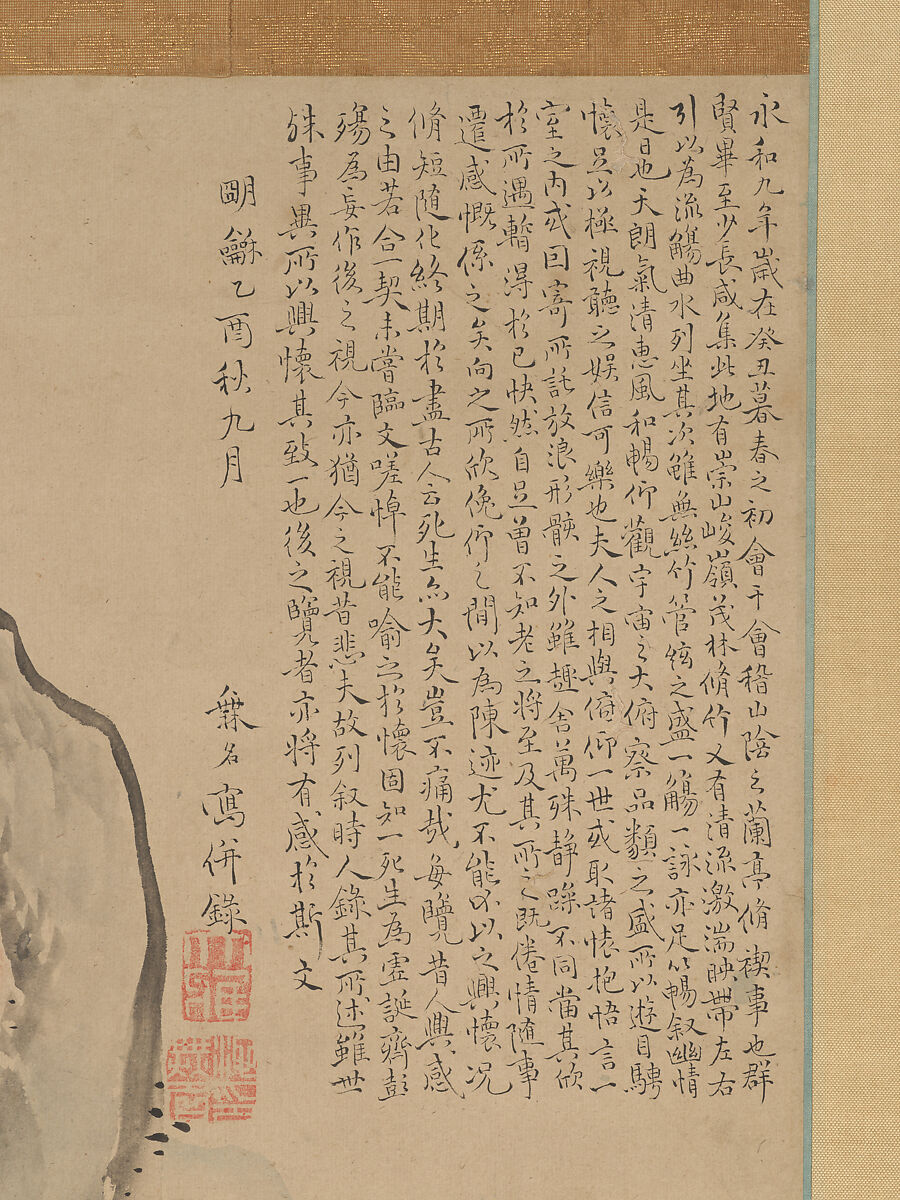 永和九年歲在癸丑暮春之初會于會稽山陰之蘭亭脩禊事也群
賢畢至少長咸集此地有崇山峻嶺茂林脩竹又有清流激湍暎帶左右
引以為流觴曲水列坐其次雖無絲竹管絃之盛一觴一詠亦足以暢叙幽情
是日也天朗氣清惠風和暢仰觀宇宙之大俯察品類之盛所以遊目騁
懷足以極視聽之娛信可樂也夫人之相與俯仰一世或取諸懷抱悟言一
室之內或因寄所託放浪形骸之外雖趣舍萬殊静躁不同當其欣
於所遇暫得於己快然自足曽不知老之將至及其所之既倦情隨事
遷感慨係之矣向之所欣俛仰之間以為陳迹尤不能不以之興懷况
脩短隨化終期於盡古人云死生亦大矣豈不痛哉每覽昔人興感
之由若合一契未嘗臨文嗟悼不能喻之於懷固知一死生為虛誕齊彭
殤為妄作後之視今亦猶今之視昔悲夫故列叙時人錄其所述雖世
殊事異所以興懷其致一也後之覽者亦將有感於斯文
明龢乙酉秋九月
無名寫併錄